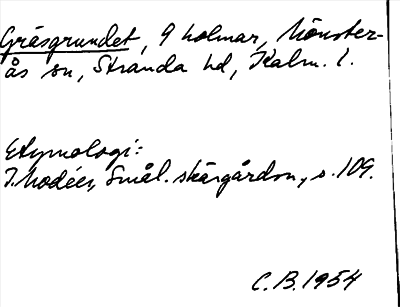 Gräsgrundet, 9 holmar, Mönster-
ås sn, Stranda hd, Kalm. l.
Etymologi:
I. Modéer, Smål. skärgårdsn, s. 109.
C.B. 1954